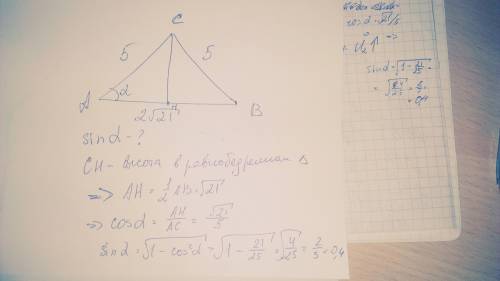 C
5 5
A α H B
2√21
sin α - ?
CH - высота в равнобедренном Δ
=> AH = 1/2 AB = √21
=> cos α = AH/AC = √21/5
sin α = √(1 - cos²α) = √(1 - 21/25) = √(4/25) = 2/5 = 0,4
cos α = √21/5
=>
sin α = √(1 -